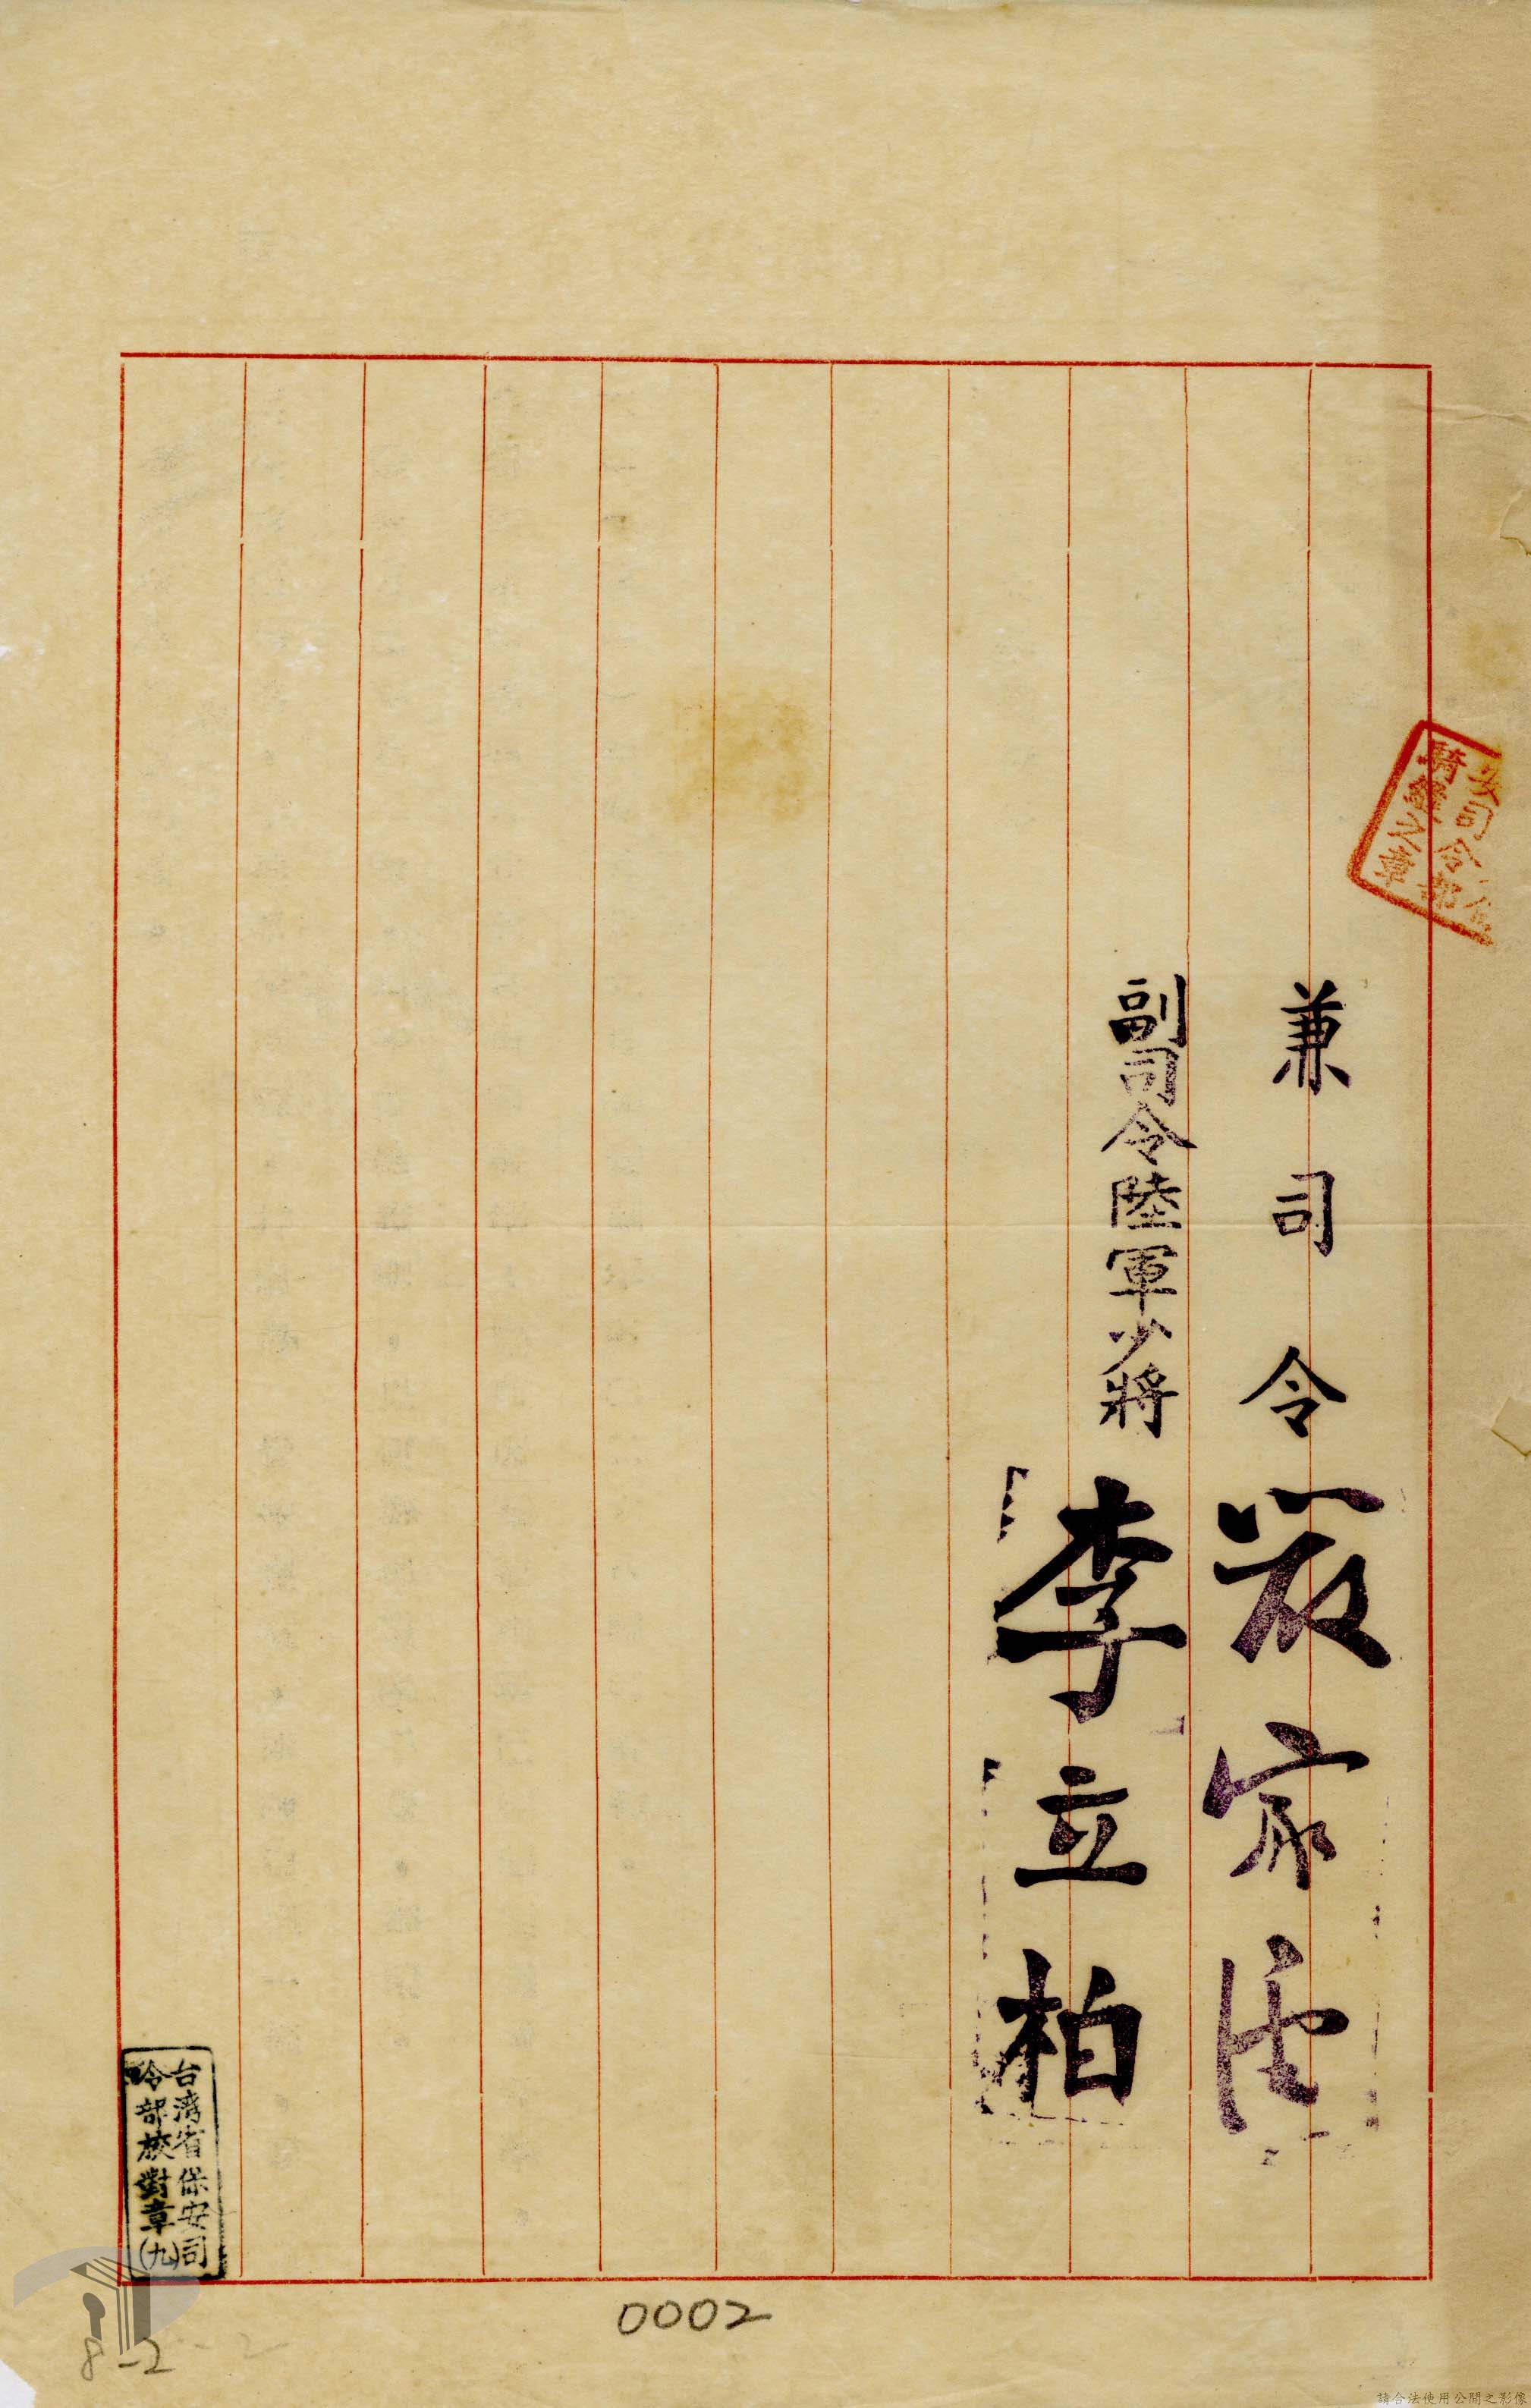 安司令部
騎縫之章
兼司令嚴家淦
副司令陸軍少將李立柏
台湾省保安司
令部校對章(九)
0002
8-2
請合法使用公開之影像